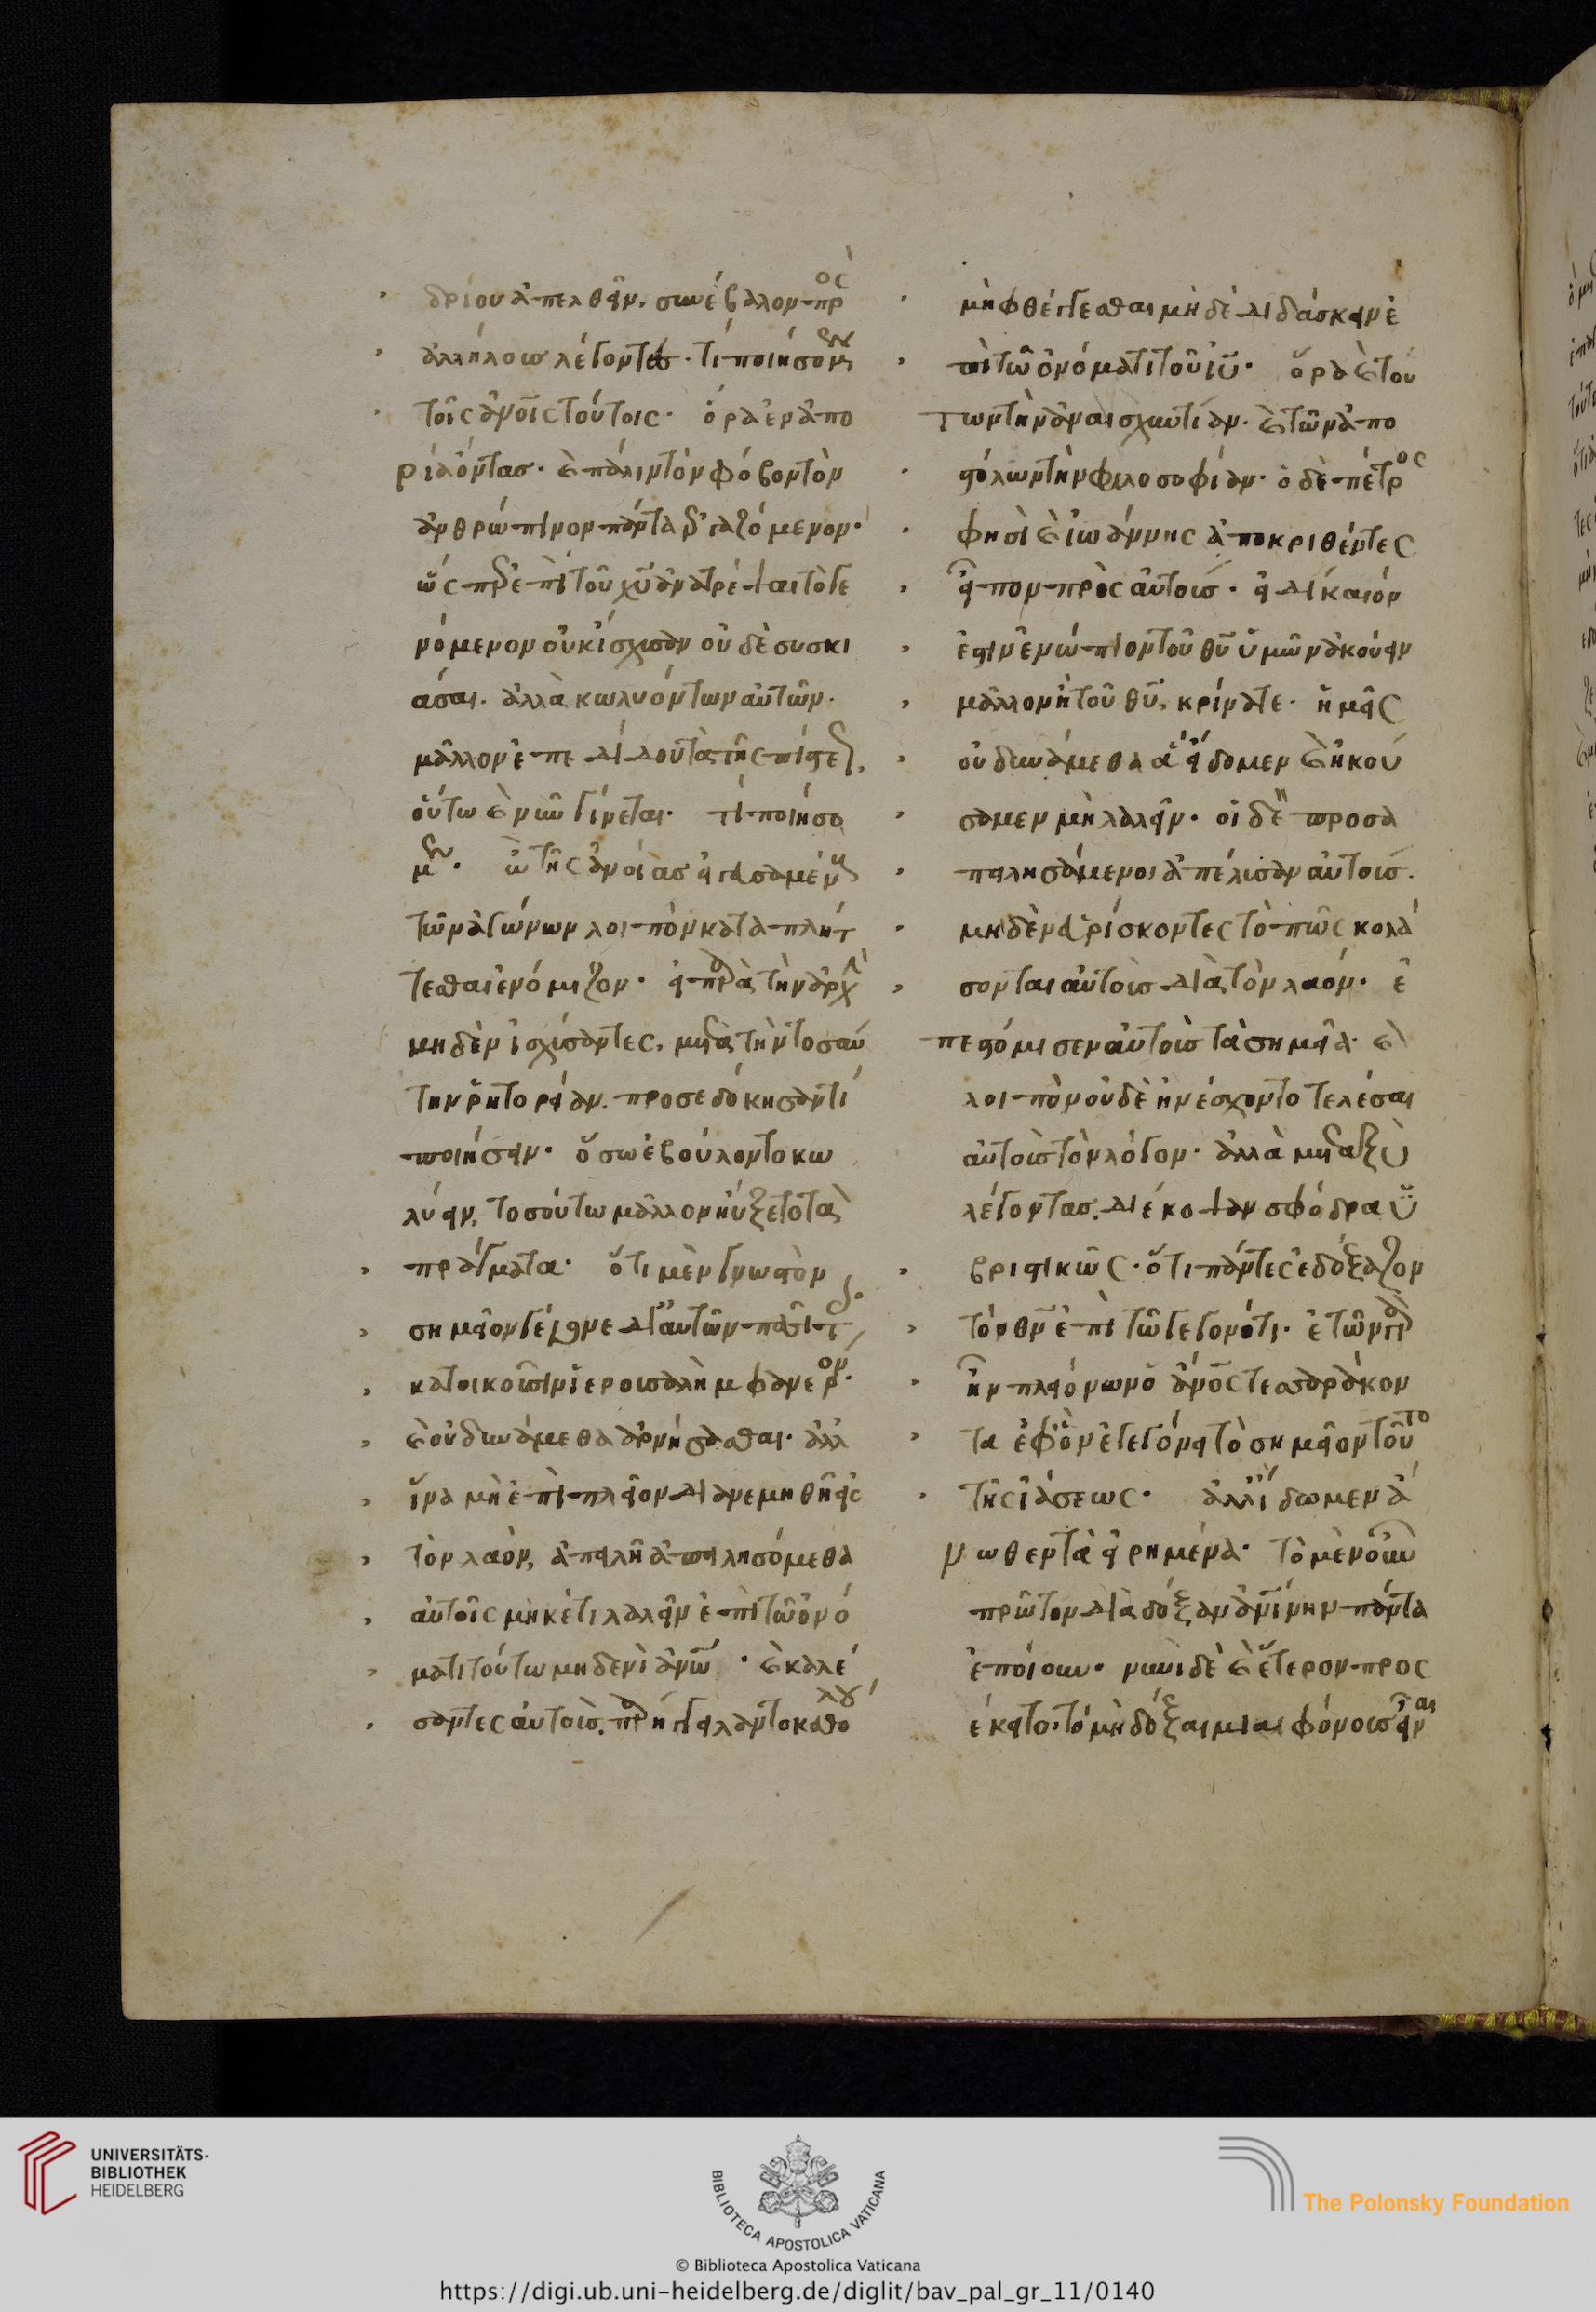 δρίου ἀπελθεῖν, συνέβαλον πρὸς
ἀλλήλους λέγοντες· τί ποιήσομεν
τοῖς ἀνοις τούτοις· ὅρα ἐν ἀπο
ρίᾳ ὄντας· καὶ πάλιν τὸν φόβον τὸν
ἀνθρώπινον πάντα βιαζόμενον·
ὡς ἐπὶ τοῦ χυ ἀνατρέψαι τὸ γε
νόμενον οὐκ ἴσχυσαν οὐδὲ συσκι
άσαι· ἀλλὰ κωλυόντων αὐτῶν·
μᾶλλον ἐπεδίδου τὰ τῆς πίστεως,
οὕτω καὶ νῦν γίνεται· τί ποιήσο
μεν· ὢ τῆς ἀνοίας
τῶν ἀγώνων λοιπὸν καταπλήτ
τεσθαι ἐνόμιζον· εἰ παρὰ τὴν ἀρχὴν
μηδὲν ἰσχύσαντες, μετὰ τὴν τοσαύ
την ῥητορείαν προσεδόκησάν τι
ποιήσειν· ὅσω ἐβούλοντο κω
λύειν, τοσούτω μᾶλλον ηὔξετο τὰ
πράγματα· ὅτι μὲν γνωστὸν
σημεῖον γέγονε δι αὐτῶν πᾶσι τοῖς
κατοικοῦσιν ἱερουσαλὴμ φανερὸν·
καὶ οὐ δυνάμεθα ἀρνήσασθαι· ἀλλ
ἵνα μὴ ἐπὶ πλεῖον διανεμηθῆ εἰς
τὸν λαὸν, ἀπειλῆ ἀπειλησόμεθα
αὐτοῖς μηκέτι λαλεῖν ἐπὶ τῶ ὀνό
ματι τούτω μηδενὶ ἀνων· καὶ καλέ
σαντες αὐτοὺς, παρήγγειλαν τὸ καθόλου
μὴ φθέγγεσθαι μὴ δὲ διδάσκειν ἐ
πὶ τῶ ὀνόματι τοῦ ιυ· ὅρα καὶ τού
των τὴν ἀναισχυντίαν· καὶ τῶν ἀπο
στόλων τὴν φιλοσοφίαν· ὁ δὲ πέτρος
φησὶ καὶ ἰωάννης ἀποκριθέντες
εἶπον πρὸς αὐτοὺς· εἰ δίκαιόν
ἐστιν ἐνώπιον τοῦ θυ ὑμῶν ἀκούειν
μᾶλλον ἢ τοῦ θυ, κρίνατε· ἡμεῖς
οὐ δυνάμεθα ἃ εἴδομεν καὶ ἠκού
σαμεν μὴ λαλεῖν· οἱ δὲ προσα
πειλησάμενοι ἀπέλυσαν αὐτοὺς·
μηδὲν εὑρίσκοντες τὸ πῶς κολά
σονται αὐτοὺς διὰ τὸν λαόν· ἐ
πεστόμισεν αὐτοὺς τὰ σημεῖα· καὶ
λοιπὸν οὐδὲ ἠνέσχοντο τελέσαι
αὐτοὺς τὸν λόγον· ἀλλὰ μεταξὺ
λέγοντας, διέκοψαν σφόδρα ὑ
βριστικῶς· ὅτι πάντες ἐδόξαζον
τὸν θν ἐπὶ τῶ γεγονότι· ἐτῶν γὰρ
ἦν πλειόνων ὁ ἀνος τεσσαράκον
τα ἐφ ὃν ἐγεγόνει τὸ σημεῖον τοῦτο
τῆς ἰάσεως· ἀλλ ἴδωμεν ἄ
νωθεν τὰ εἰρημένα· τὸ μὲν οὖν
πρῶτον διὰ δόξαν ἀνίνην πάντα
ἐποίουν· νυνὶ δὲ καὶ ἕτερον προς
έκειτο, τὸ μὴ δόξαι μιαιφόνους εἶναι